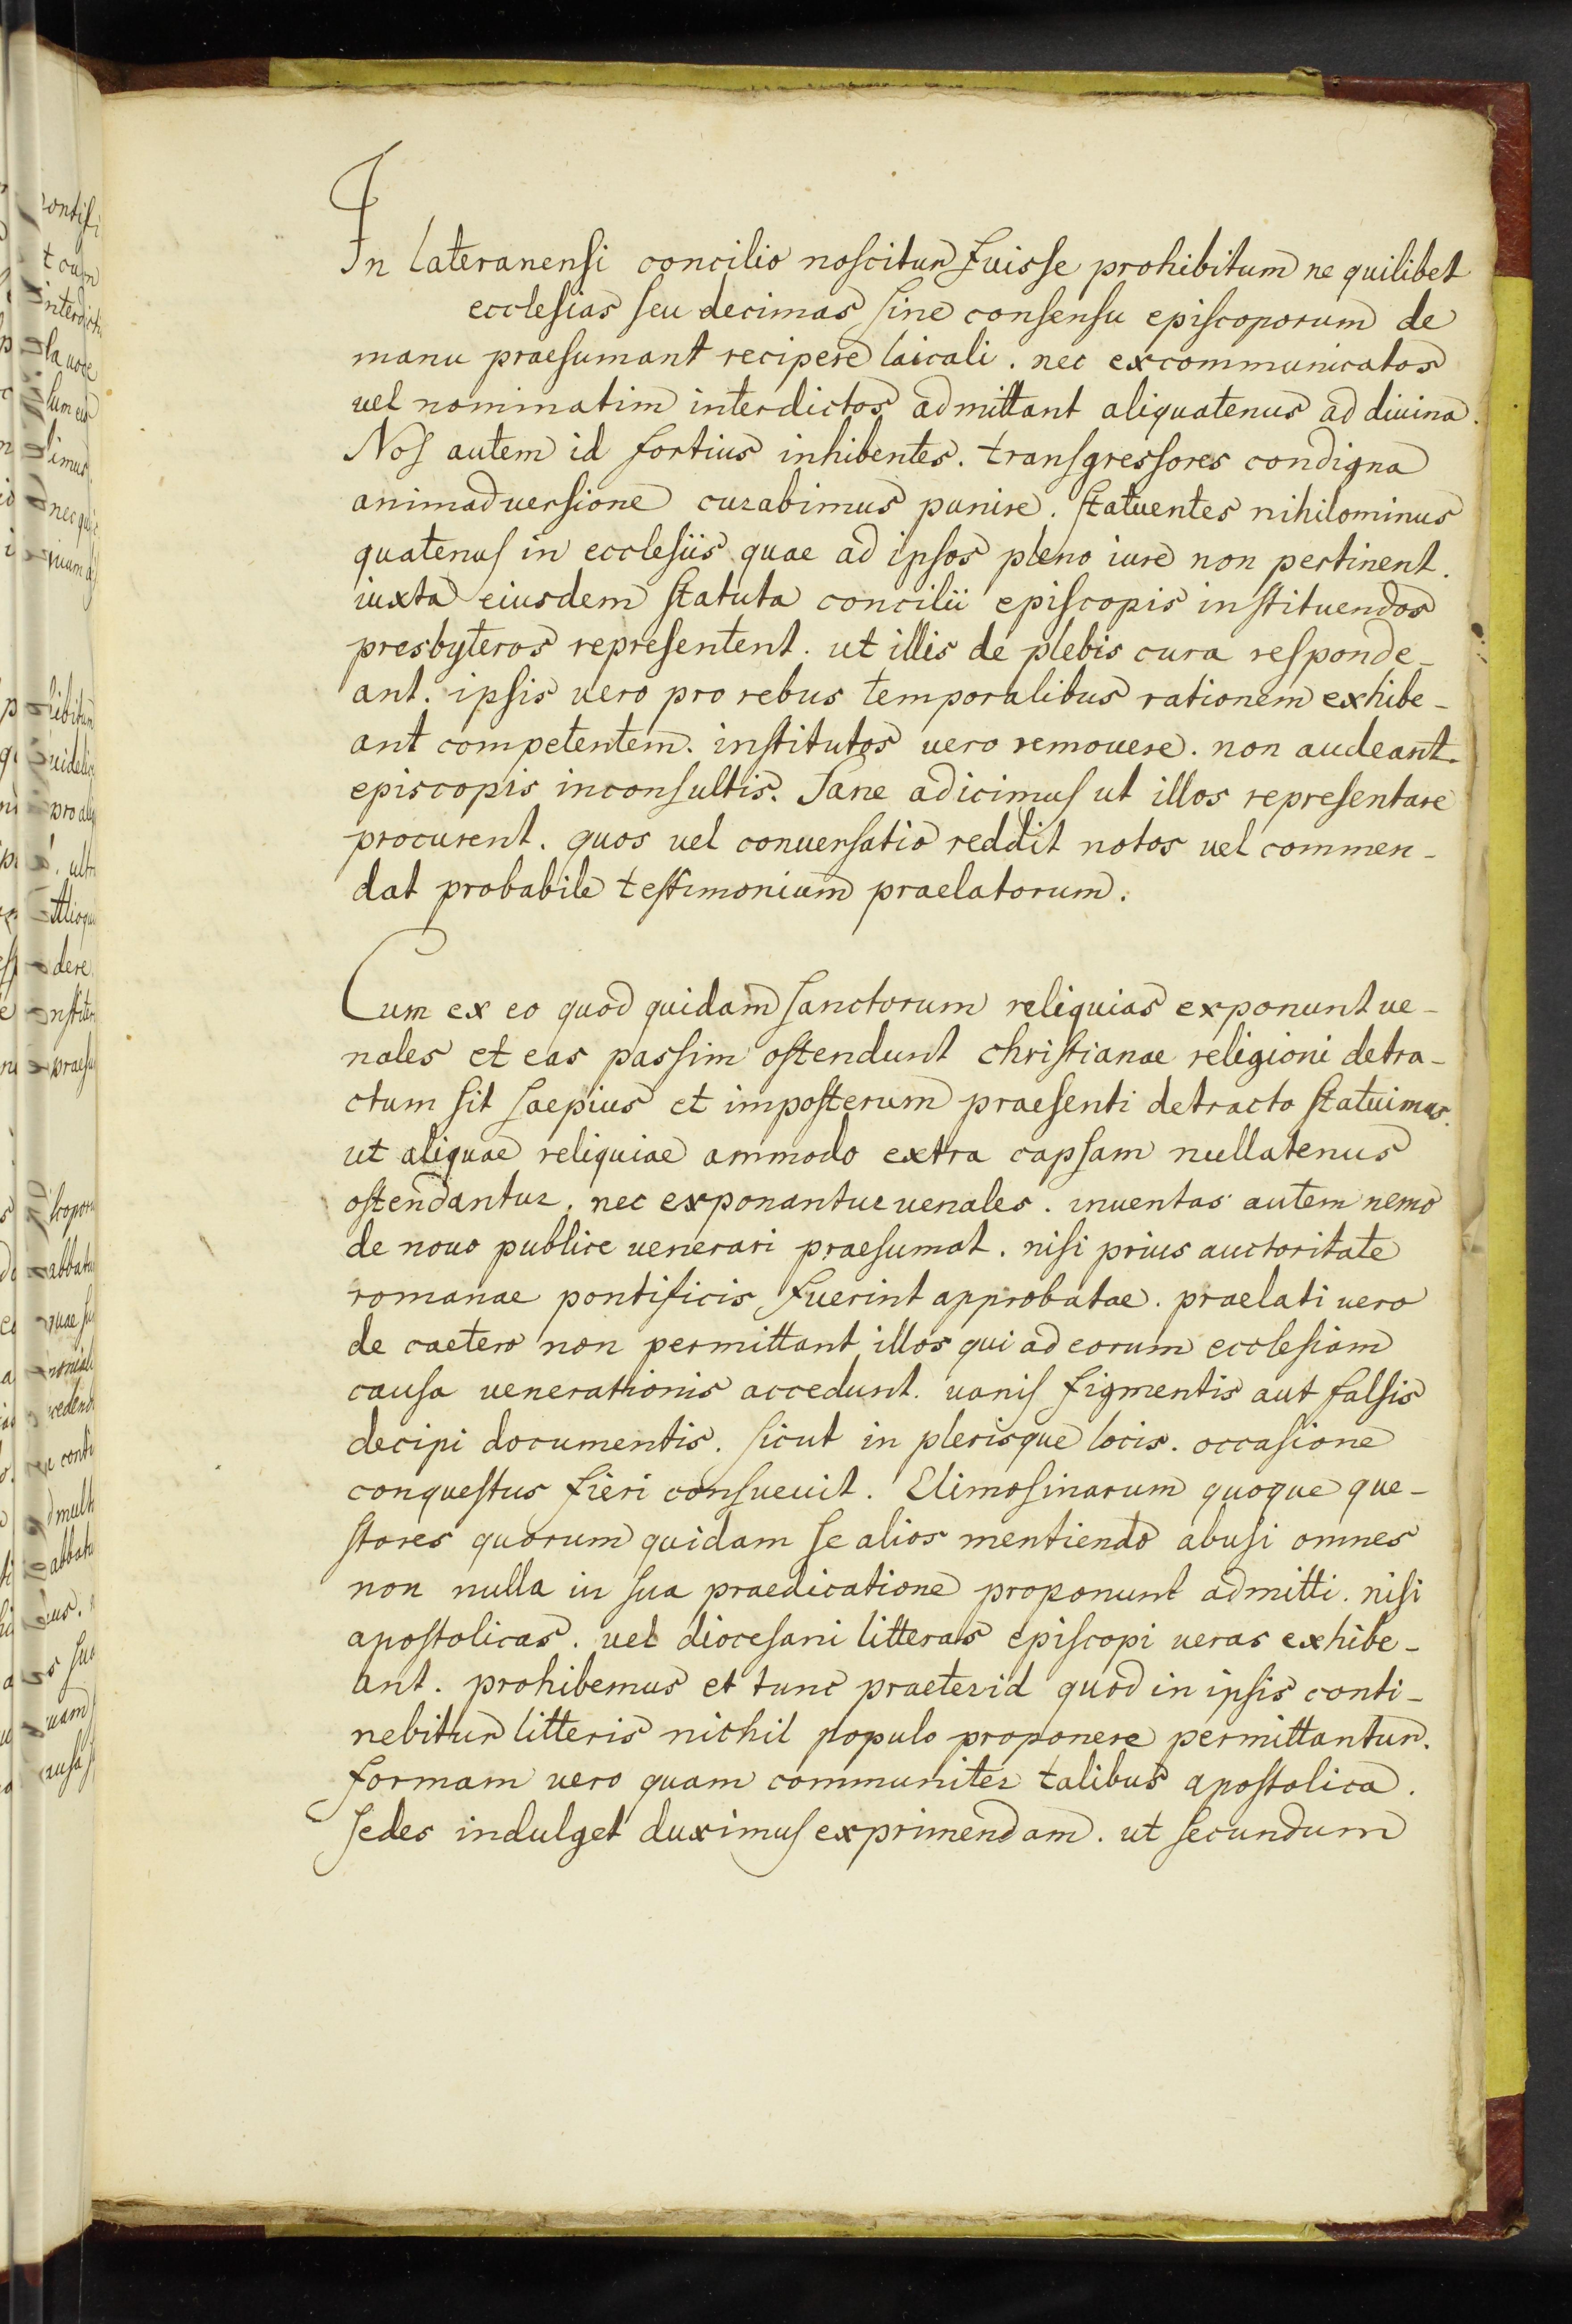 In lateranensi concilio noscitur fuisse prohibitum ne quilibet
ecclesias seu decimas sine consensu episcoporum de
manu praesumant recipere laicali. nec excommunicatos
uel nominatim interdictos admittant aliquatenus ad diuina.
Nos autem id fortius inhibentes. transgressores condigna
animaduersione curabimus punire. statuentes nihilominus
quatenus in ecclesiis quae ad ipsos pleno iure non pertinent.
iuxta eiusdem statuta concilii episcopis instituendos
presbyteros representent. ut illis de plebis cura responde-
ant. ipsis uero pro rebus temporalibus rationem exhibe-
ant competentem. institutos uero remouere. non audeant.
episcopis inconsultis. Sane adicimus ut illos representare
procurent. quos uel conuersatio reddit notos uel commen-
dat probabile testimonium praelatorum.
Cum ex eo quod quidam sanctorum reliquias exponunt ue-
nales et eas passim ostendunt christianae religioni detra-
ctum sit saepius et imposterum praesenti detracto statuimus.
ut aliquae reliquiae ammodo extra capsam nullatenus
ostendantur. nec exponantur uenales. inuentas autem nemo
de nouo publice uenerari praesumat. nisi prius auctoritate
romanae pontificis fuerint approbatae. praelati uero
de caetero non permittant illos qui ad eorum ecclesiam
causa uenerationis accedunt. uanis figmentis aut falsis
decipi documentis. sicut in plerisque locis. occasione
conquestus fieri consueuit. Elimosinarum quoque que-
stores quorum quidam se alios mentiendo abusi omnes
non nulla in sua praedicatione proponunt admitti. nisi
apostolicas. uel diocesani litteras episcopi ueras exhibe-
ant. prohibemus et tunc praeterid quod in ipsis conti-
nebitur litteris nichil populo proponere permittantur.
formam uero quam communiter talibus apostolica.
sedes indulget duximus exprimendam. ut secundum